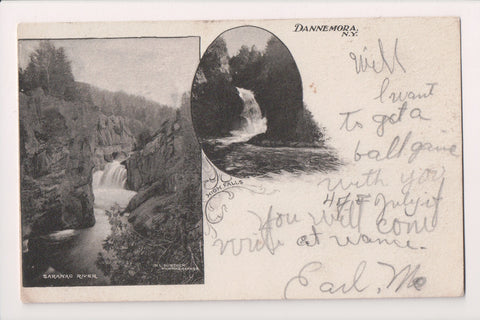 DANNEMORA,
N.Y.
Will
I want
to get a
ball game
with you
4th July if
You will come
write at wance.
Earl, Mc
HIGH FALLS
SARANAC RIVER